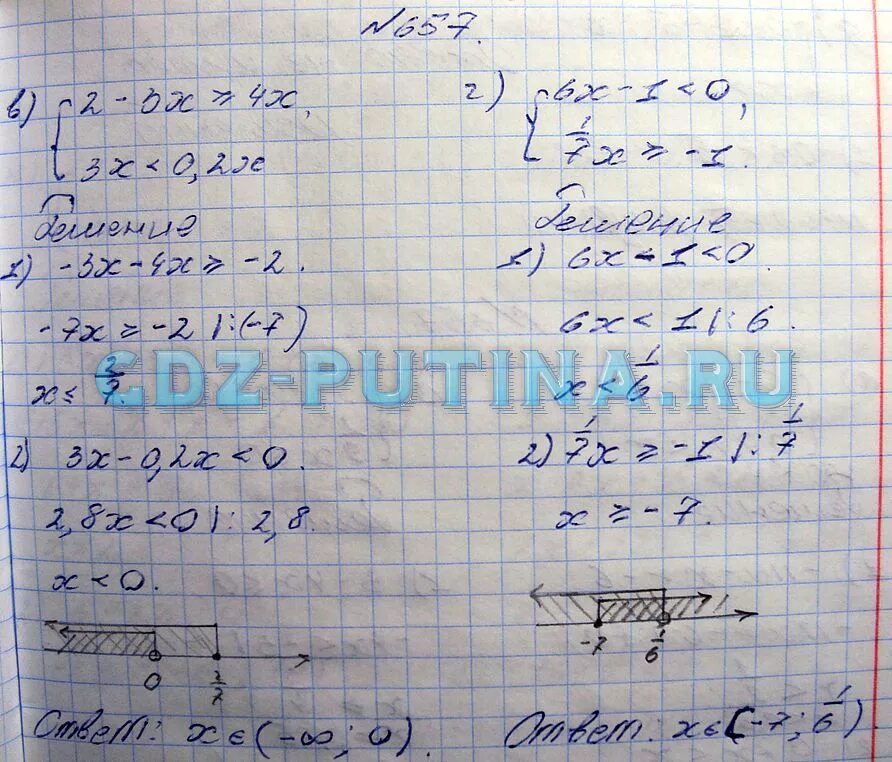 №657.
в) { 2 - 3x ≥ 4x,
3x < 0,2x
Решение
1) -3x - 4x ≥ -2.
-7x ≥ -2 |:(-7)
x ≤ 2/7.
2) 3x - 0,2x < 0.
2,8x < 0 |: 2,8.
x < 0.
0 2/7
Ответ: x ∈ (-∞; 0).
г) { 6x - 1 < 0,
1/7 x ≥ -1.
Решение
1) 6x - 1 < 0.
6x < 1 |: 6.
x < 1/6
2) 1/7 x ≥ -1 |: 1/7
x ≥ -7.
-7 1/6
Ответ: x ∈ [-7; 1/6).
GDZ-PUTINA.RU